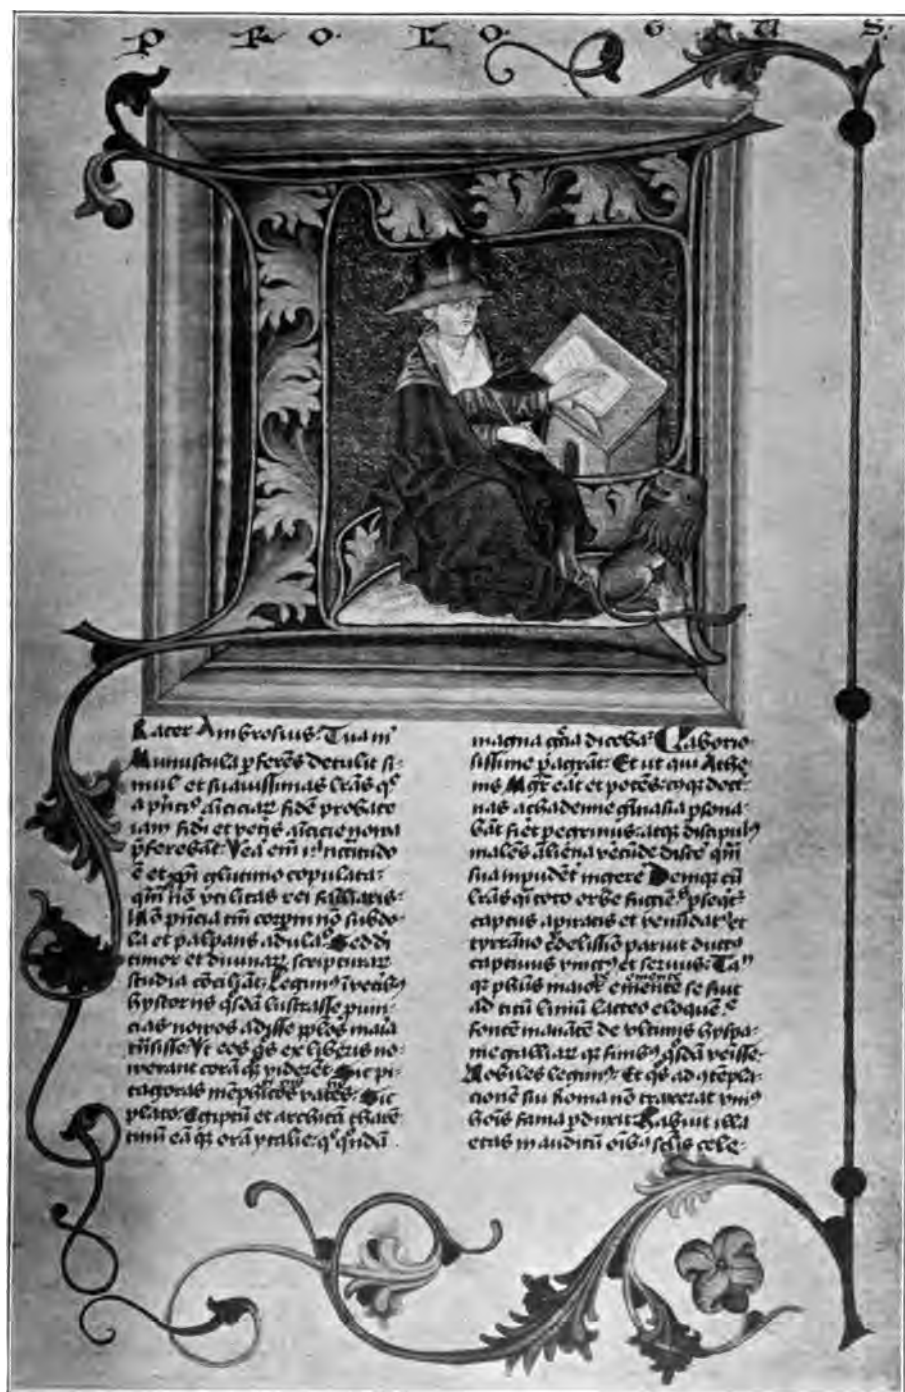 PROLOGUS
Rater Ambrosius: Tua m
Munuscula ꝑferēs detulit si-
mul et suauissimas lr̄as qͥ
a pͥncͥ aīciciar fidē probate
iam fidi et vetͥs aīcicie noua
p̄ferebāt: Vea em̄ ncͥtitudo
ē et xp̄i glutino copulata-
qm̄ nō vtilitas rei failiaris:
Nō pn̄cia tm̄ corpm nō subdo-
la et palpans adula: Sed di
timor et diuinar scripturar
studia cōciliāt: Legimꝯ ī vetibꝯ
hystoriis qͥsdā lustrasse ꝓuin-
cias nouos adisse pplos maia
trāsisse: Vt eos qͥs ex libris no-
uerant corā qꝫ viderēt Sic pi-
tagoras mēphiticos vates: Sic
plato: Egiptū et architā tharē-
tinū eā qꝫ orā ytalie: qͥ qͦndā
magna gͣcia diceba Laborio-
sissime ꝑagrāt: Et ut qui Athe-
nis Mgr̄ eāt et potēs: cuꝯqꝫ doct
nas achademie gīnasia ꝑsona-
bāt fiet ꝑegrinus: atqꝫ discipulꝯ
malēs aliena vecūde disce qm̄
sua impudēt ingere Deniqꝫ cū
lr̄as qͣi toto orbe fugiē ꝑseqͥt
captus a piratis et venūdatꝯ et
tyrāno cͥdelissīo paruit ductꝯ
captiuus vinctꝯ et seruus: Ta
qꝫ ph̄us maior emēte se fuit
ad titū liuiū lacteo eloquē
fontē manātē de vltimis hyspa-
nie galliar qꝫ finibꝯ qͥsdā veīsse-
Nobiles legimꝯ: Et qͥs ad ꝯtēpla-
cionē sui Roma nō traxerat vniꝯ
hoīs fama ꝑduxit: Habuit illa
etas inauditū oībꝯ sclis cele-